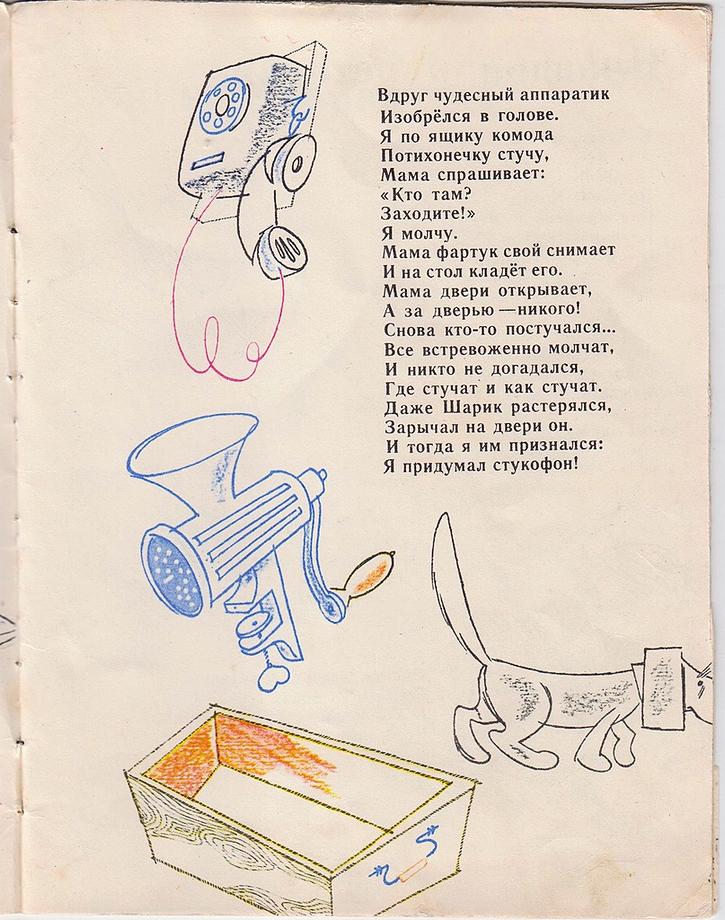 Вдруг чудесный аппаратик
Изобрёлся в голове.
Я по ящику комода
Потихонечку стучу,
Мама спрашивает:
«Кто там?
Заходите!»
Я молчу.
Мама фартук свой снимает
И на стол кладёт его.
Мама двери открывает,
А за дверью — никого!
Снова кто-то постучался...
Все встревоженно молчат,
И никто не догадался,
Где стучат и как стучат.
Даже Шарик растерялся,
Зарычал на двери он.
И тогда я им признался:
Я придумал стукофон!